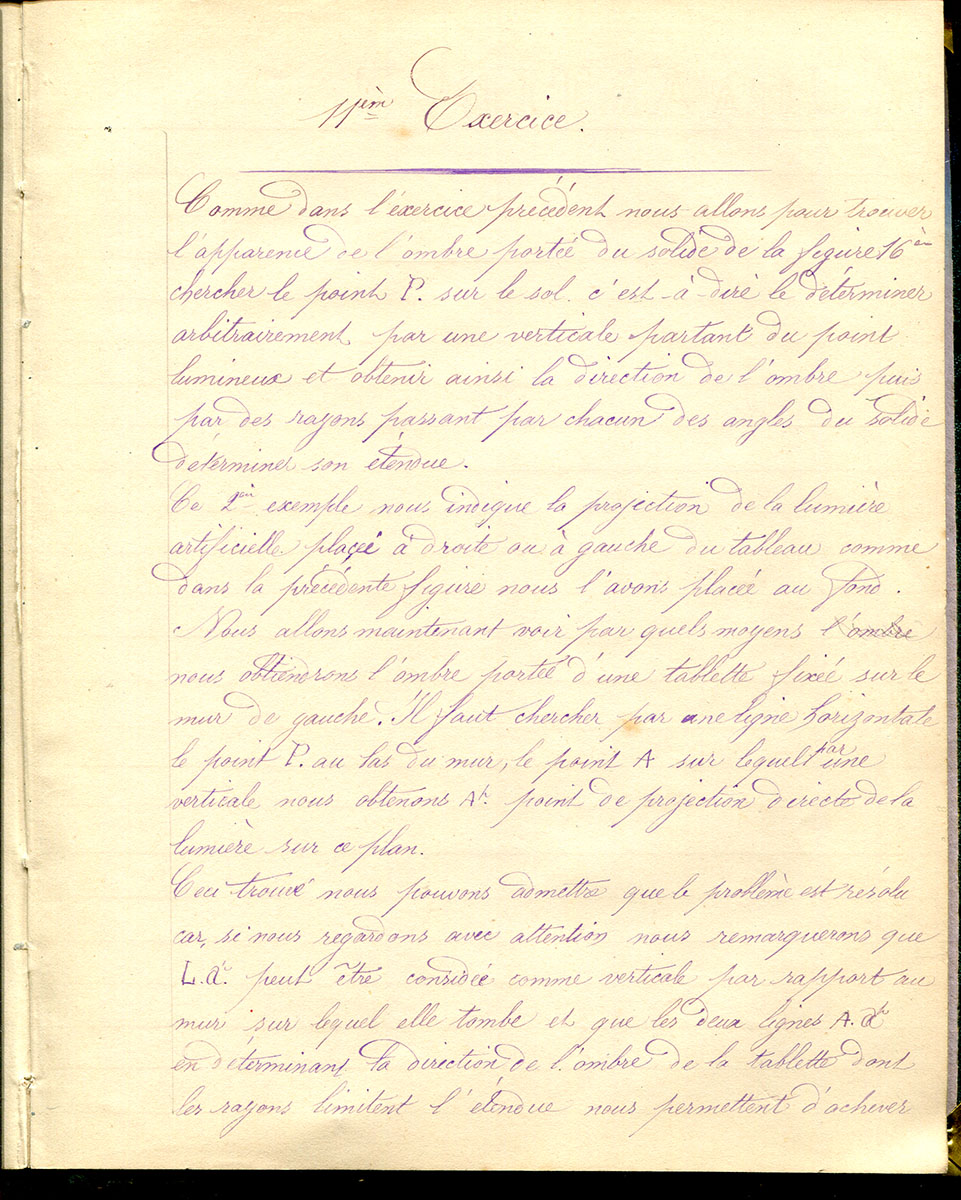 11èm Exercice.
Comme dans l'éxercice précédent nous allons pour trouver
l'apparence de l'ombre portée du solide de la figure 16èm
chercher le point P. sur le sol. c'est-à-dire le déterminer
arbitrairement par une verticale partant du point
lumineux et obtenir ainsi la direction de l'ombre puis
par des rayons passant par chacun des angles du solide
déterminer son étendue.
Ce 2èm exemple nous indique la projection de la lumière
artificielle placée à droite ou à gauche du tableau comme
dans la précédente figure nous l'avons placée au fond.
Nous allons maintenant voir par quels moyens l'ombre
nous obtiendrons l'ombre portée d'une tablette fixée sur le
mur de gauche. Il faut chercher par une ligne horizontale
le point P. au bas du mur, le point A sur lequel par une
verticale nous obtenons A'. point de projection directe de la
lumière sur ce plan.
Ceci trouvé nous pouvons admettre que le problème est résolu
car, si nous regardons avec attention nous remarquerons que
L.a'. peut être considée comme verticale par rapport au
mur sur lequel elle tombe et que les deux lignes A.a'
en déterminant la direction de l'ombre de la tablette dont
les rayons limitent l'étendue nous permettent d'achever